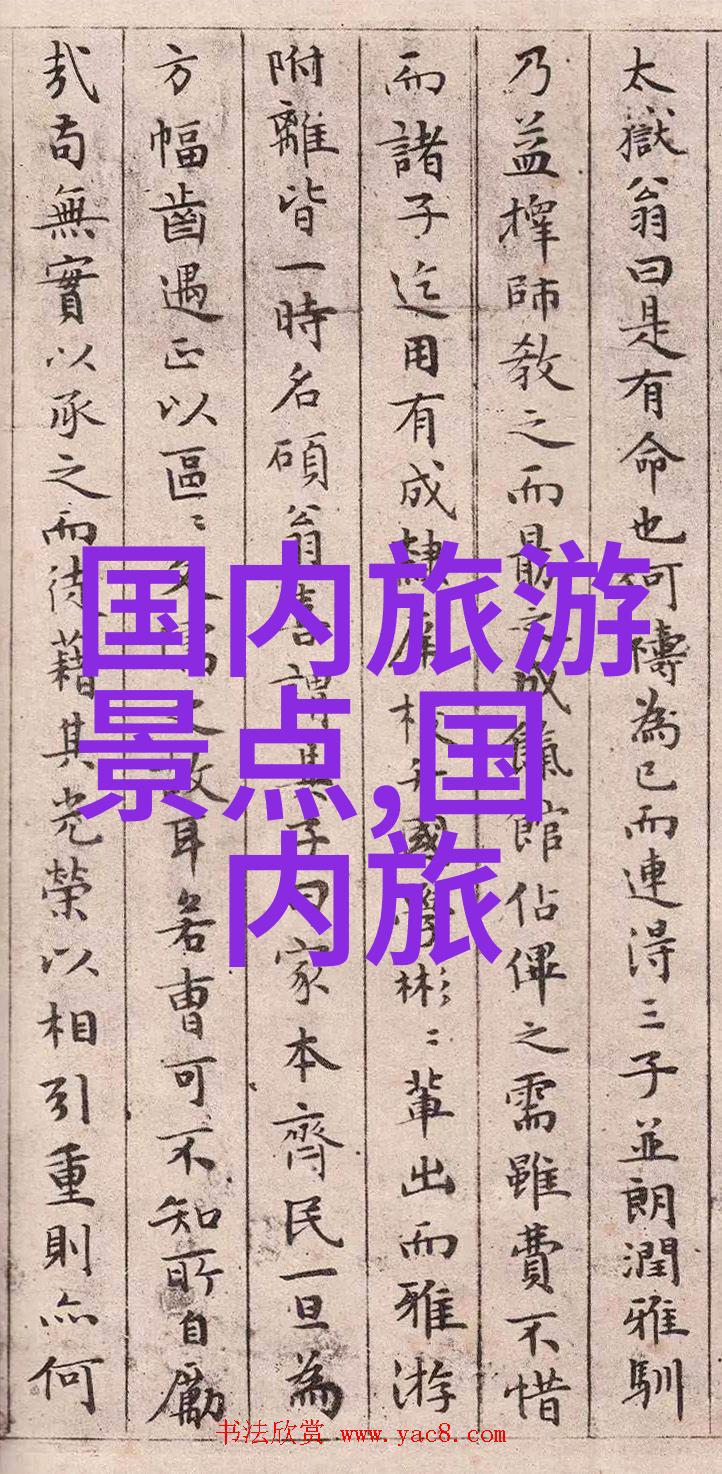 太嶽翁曰是有命也何禱為已而連得三子並朗潤雅馴
乃益擇師教之而成餼館佔俾之需雖費不惜
而諸子迄用有成隸庠校國學彬〻輩出而雅游
附離皆一時名碩翁喜謂其子曰家本齊民一旦為
方幅齒遇正以區〻文之故耳若曹可不知所自勵
哉苟無實以承之而徒藉其光榮以相引重則亦何
国内旅游
景点,国
内旅
书法欣赏 www.yac8.com